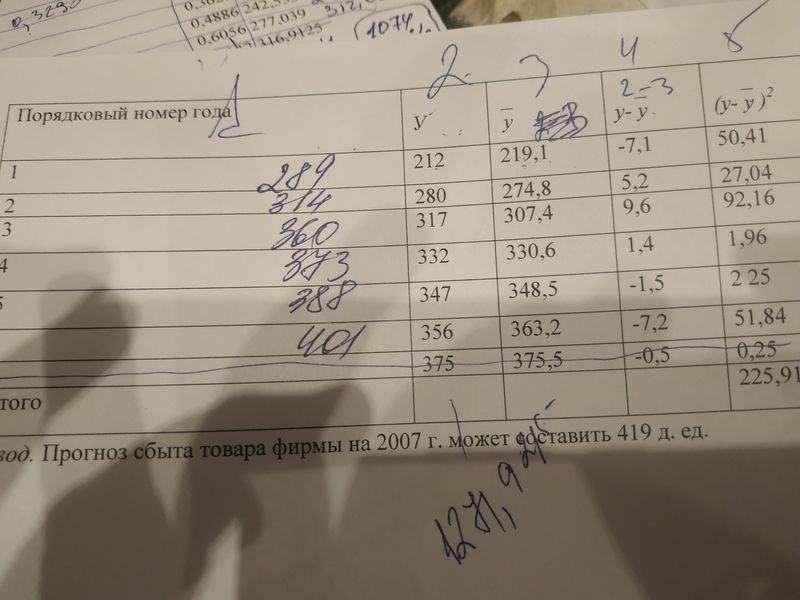 0,3295
0,4886 242,53
0,6056 277,039
316,9125
107%
1 2 3 4 5
2-3
Порядковый номер года y y̅ y- y̅ (y- y̅ )²
1 289 212 219,1 -7,1 50,41
2 314 280 274,8 5,2 27,04
3 360 317 307,4 9,6 92,16
4 373 332 330,6 1,4 1,96
5 388 347 348,5 -1,5 2 25
401 356 363,2 -7,2 51,84
375 375,5 -0,5 0,25
того 225,91
вод. Прогноз сбыта товара фирмы на 2007 г. может составить 419 д. ед.